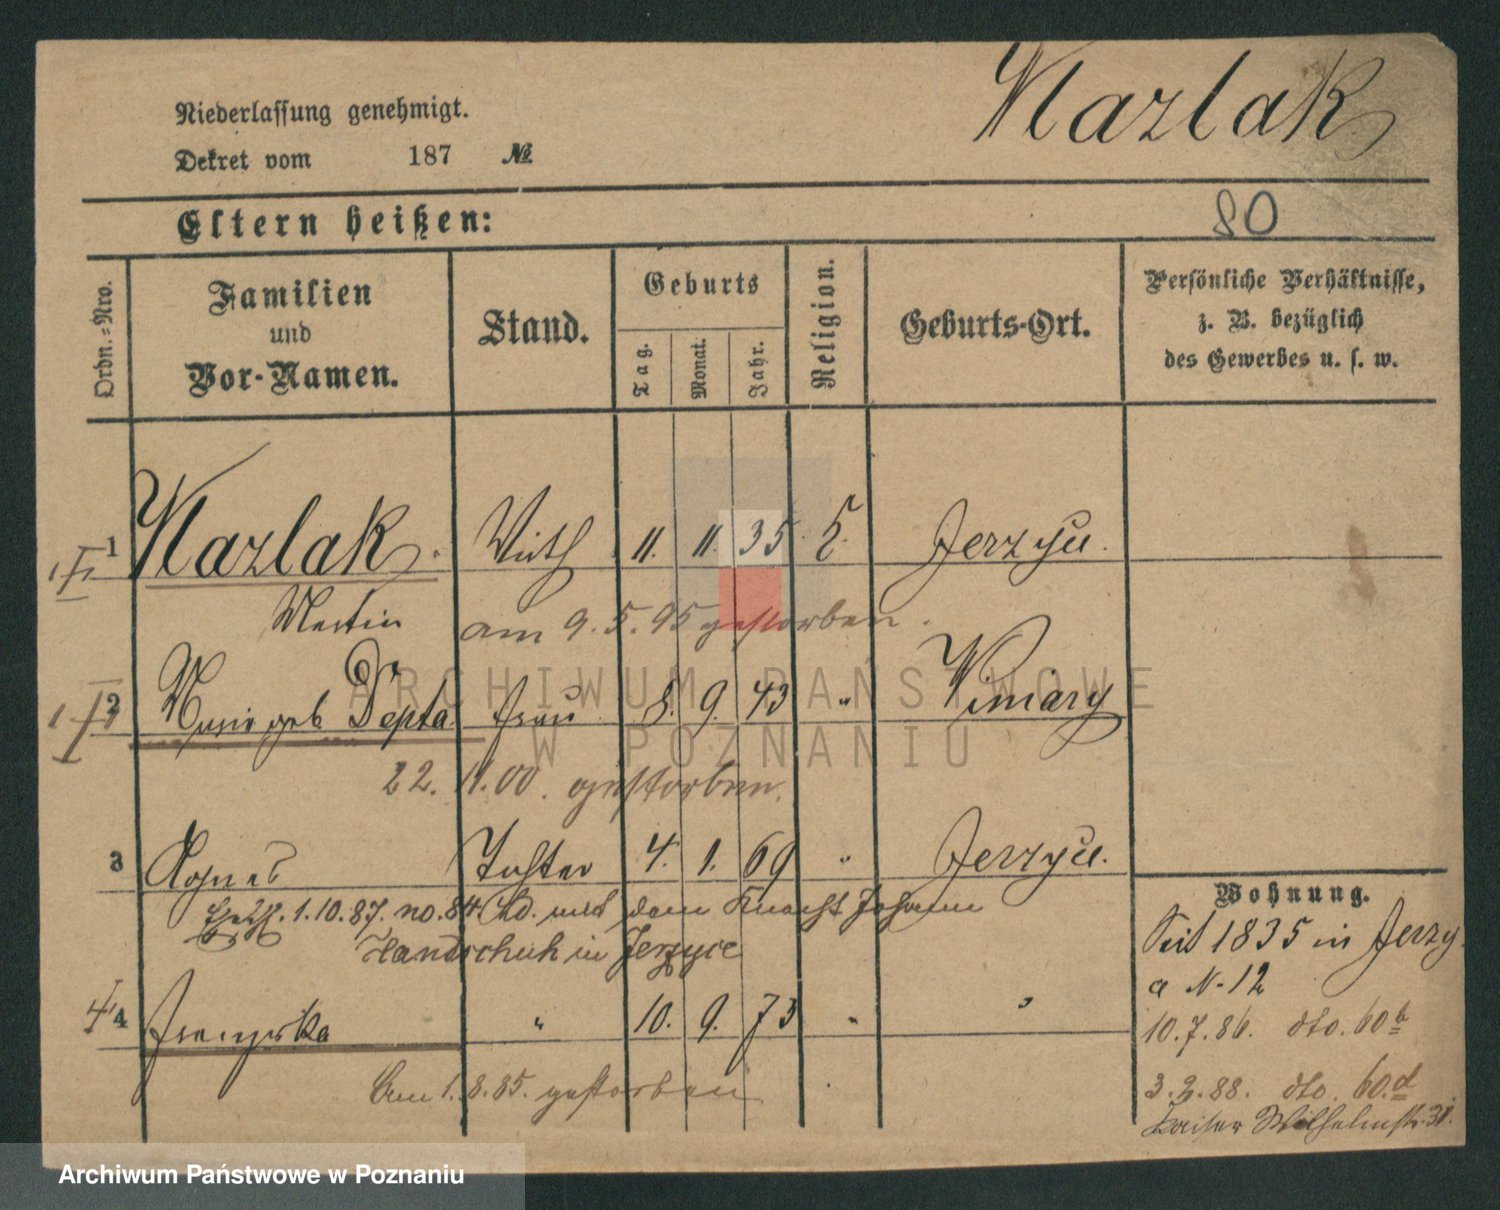 Niederlassung genehmigt.
Kazlak
Dekret vom 187 №
Eltern heißen:
80
Ordn.=Nro.
Familien und Vor-Namen.
Stand.
Geburts
Tag.
Monat.
Jahr.
Religion.
Geburts-Ort.
Persönliche Verhältnisse,
z. B. bezüglich
des Gewerbes u. s. w.
1 Kazlak Wirth 11. 11. 35. Jerzyce.
Martin am 9.5.95 gestorben.
2 Marie geb Depta Frau 8. 9. 43 " Winiary
22. 11.00. gestorben.
3 Agnes Tochter 4. 1. 69 " Jerzyce.
1.10.87. no. 84 mit dem Knecht Johann
Handschuh in Jerzyce
4 Franziska " 10. 9. 73 " "
Am 1.8.85. gestorben
Wohnung.
Seit 1835 in Jerzy
a N. 12
10.7.86. dto. 60b
3.2.88. dto. 60.d
Kaiser Wilhelmstr. 31.
ARCHIWUM PAŃSTWOWE
W POZNANIU
Archiwum Państwowe w Poznaniu